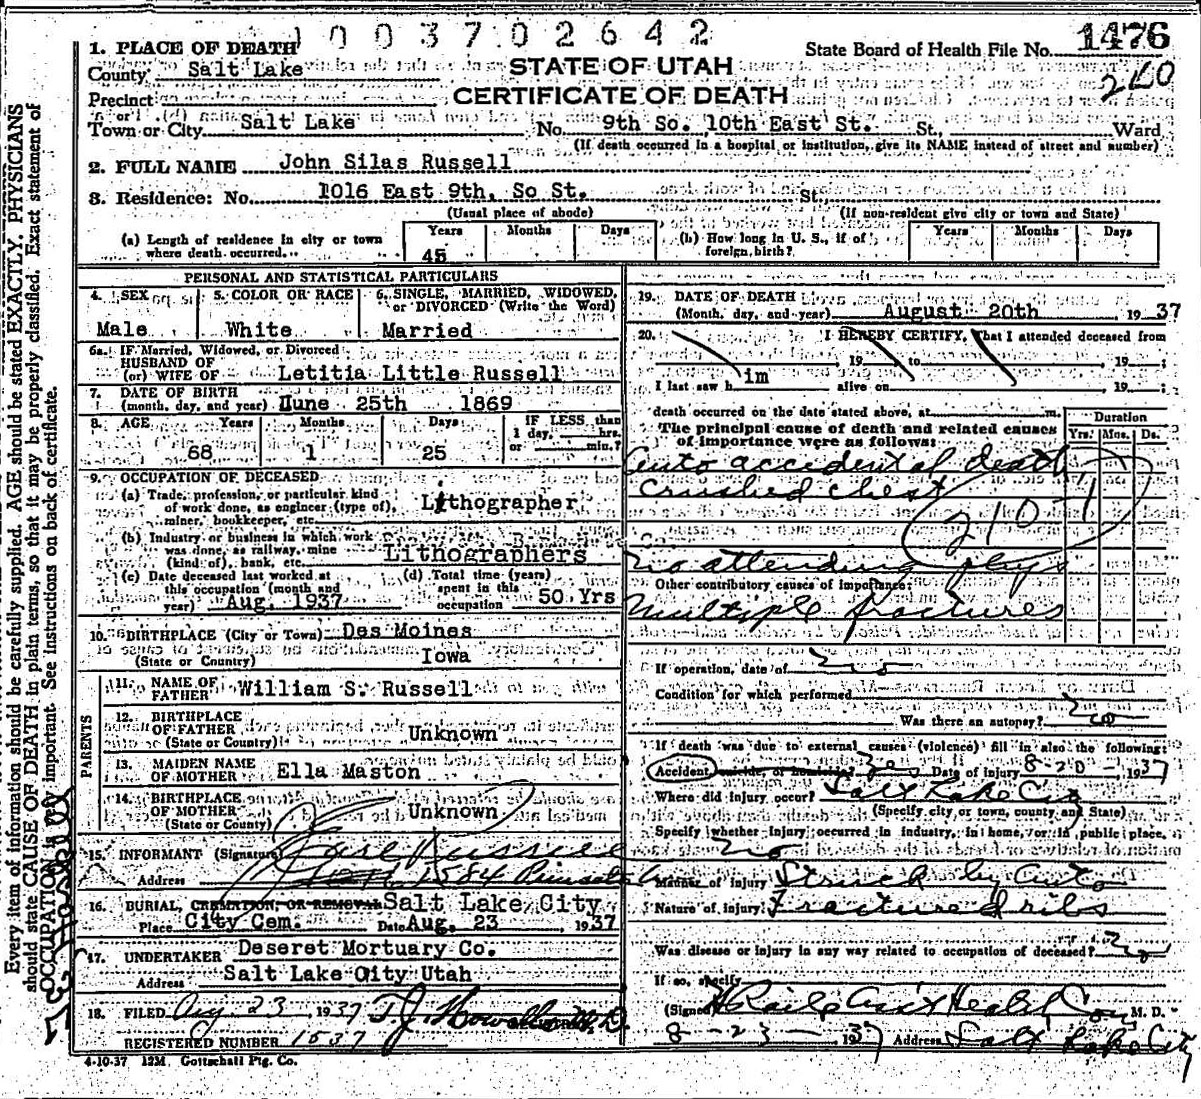 1003702642
1. PLACE OF DEATH
State Board of Health File No. 1476
County Salt Lake
STATE OF UTAH
260
Precinct
CERTIFICATE OF DEATH
Town or City Salt Lake No. 9th So. 10th East St. St., Ward
(If death occurred in a hospital or institution, give its NAME instead of street and number)
2. FULL NAME John Silas Russell
3. Residence: No. 1016 East 9th, So St. St.
(Usual place of abode) (If non-resident give city or town and State)
(a) Length of residence in city or town where death occurred. Years 45 Months Days
(b) How long in U. S., if of foreign birth? Years Months Days
PERSONAL AND STATISTICAL PARTICULARS
4. SEX Male
5. COLOR OR RACE White
6. SINGLE, MARRIED, WIDOWED, or DIVORCED (Write the Word) Married
6a. If Married, Widowed, or Divorced
HUSBAND OF
(or) WIFE OF Letitia Little Russell
7. DATE OF BIRTH
(month, day, and year) June 25th 1869
8. AGE Years 68 Months 1 Days 25
IF LESS than 1 day, hrs. or min.?
9. OCCUPATION OF DECEASED
(a) Trade, profession, or particular kind of work done, as engineer (type of), miner, bookkeeper, etc. Lithographer
(b) Industry or business in which work was done, as railway, mine (kind of), bank, etc. Lithographers
(c) Date deceased last worked at this occupation (month and year) Aug. 1937
(d) Total time (years) spent in this occupation 50 Yrs
10. BIRTHPLACE (City or Town) Des Moines
(State or Country) Iowa
PARENTS
11. NAME OF FATHER William S. Russell
12. BIRTHPLACE OF FATHER
(State or Country) Unknown
13. MAIDEN NAME OF MOTHER Ella Maston
14. BIRTHPLACE OF MOTHER
(State or Country) Unknown
15. INFORMANT (Signature) Russell
Address 1584
16. BURIAL, CREMATION, OR REMOVAL Salt Lake City
Place City Cem. Date Aug. 23 1937
17. UNDERTAKER Deseret Mortuary Co.
Address Salt Lake City Utah
18. FILED Aug. 23 1937 T. J. Howells M.D.
REGISTERED NUMBER 1537
4-10-37 12M Gottschall Ptg. Co.
19. DATE OF DEATH
(Month, day, and year) August 20th 1937
20. I HEREBY CERTIFY, That I attended deceased from
, 19 to , 19 ;
I last saw him alive on 19 ;
death occurred on the date stated above, at m.
The principal cause of death and related causes of importance were as follows:
Duration
Yrs. Mos. Ds.
Auto accidental death
crushed chest
210
no attending phys
Other contributory causes of importance:
Multiple fractures
If operation, date of no
Condition for which performed
Was there an autopsy? no
If death was due to external causes (violence) fill in also the following:
Accident, suicide, or homicide? yes Date of injury 8-20- 1937
Where did injury occur? Salt Lake City
(Specify city or town, county and State)
Specify whether injury occurred in industry, in home, or in public place,
no
Manner of injury Struck by auto
Nature of injury Fractured ribs
Was disease or injury in any way related to occupation of deceased? no
If so, specify
(Signed) Health M. D.
8-23- 1937 Address Salt Lake City
Every item of information should be carefully supplied. AGE should be stated EXACTLY. PHYSICIANS
should state CAUSE OF DEATH in plain terms, so that it may be properly classified. Exact statement of
OCCUPATION is very important. See instructions on back of certificate.